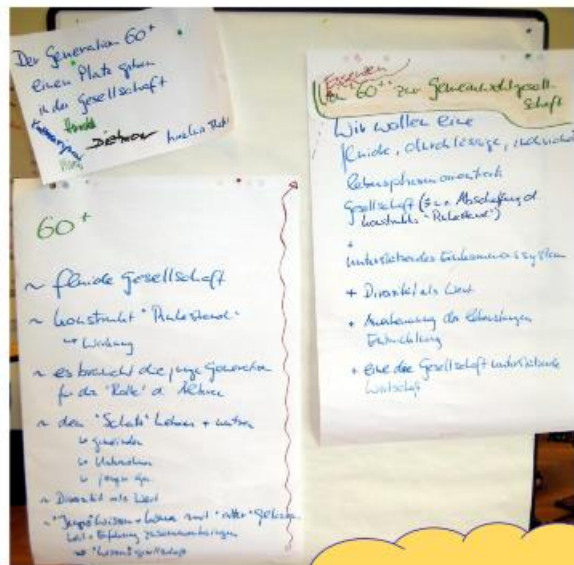 Der Generation 60+
einen Platz geben
in der Gesellschaft
Harald
Dietmar
60+
~ fluide Gesellschaft
~ Konstrukt "Ruhestand"
↳ Wirkung
~ es braucht die junge Generation
für die "Rolle" d. Älteren
~ den "Schatz" heben + nutzen
↳ Gemeinden
↳ Unternehmen
↳ junge
~ Diversität als Wert
+ Erfahrung zusammenbringen
Essenzen
Von 60++ zur Gemeinwohlgesell-
schaft
Wir wollen eine
fluide, durchlässige,
lebensphasenorientierte
Gesellschaft (z.B. Abschaffung d.
Konstrukts "Ruhestand")
+
unterstützendes Einkommenssystem
+ Diversität als Wert
+ Anerkennung der lebenslangen
Entwicklung
+ eine der Gesellschaft unterstützende
Wirtschaft